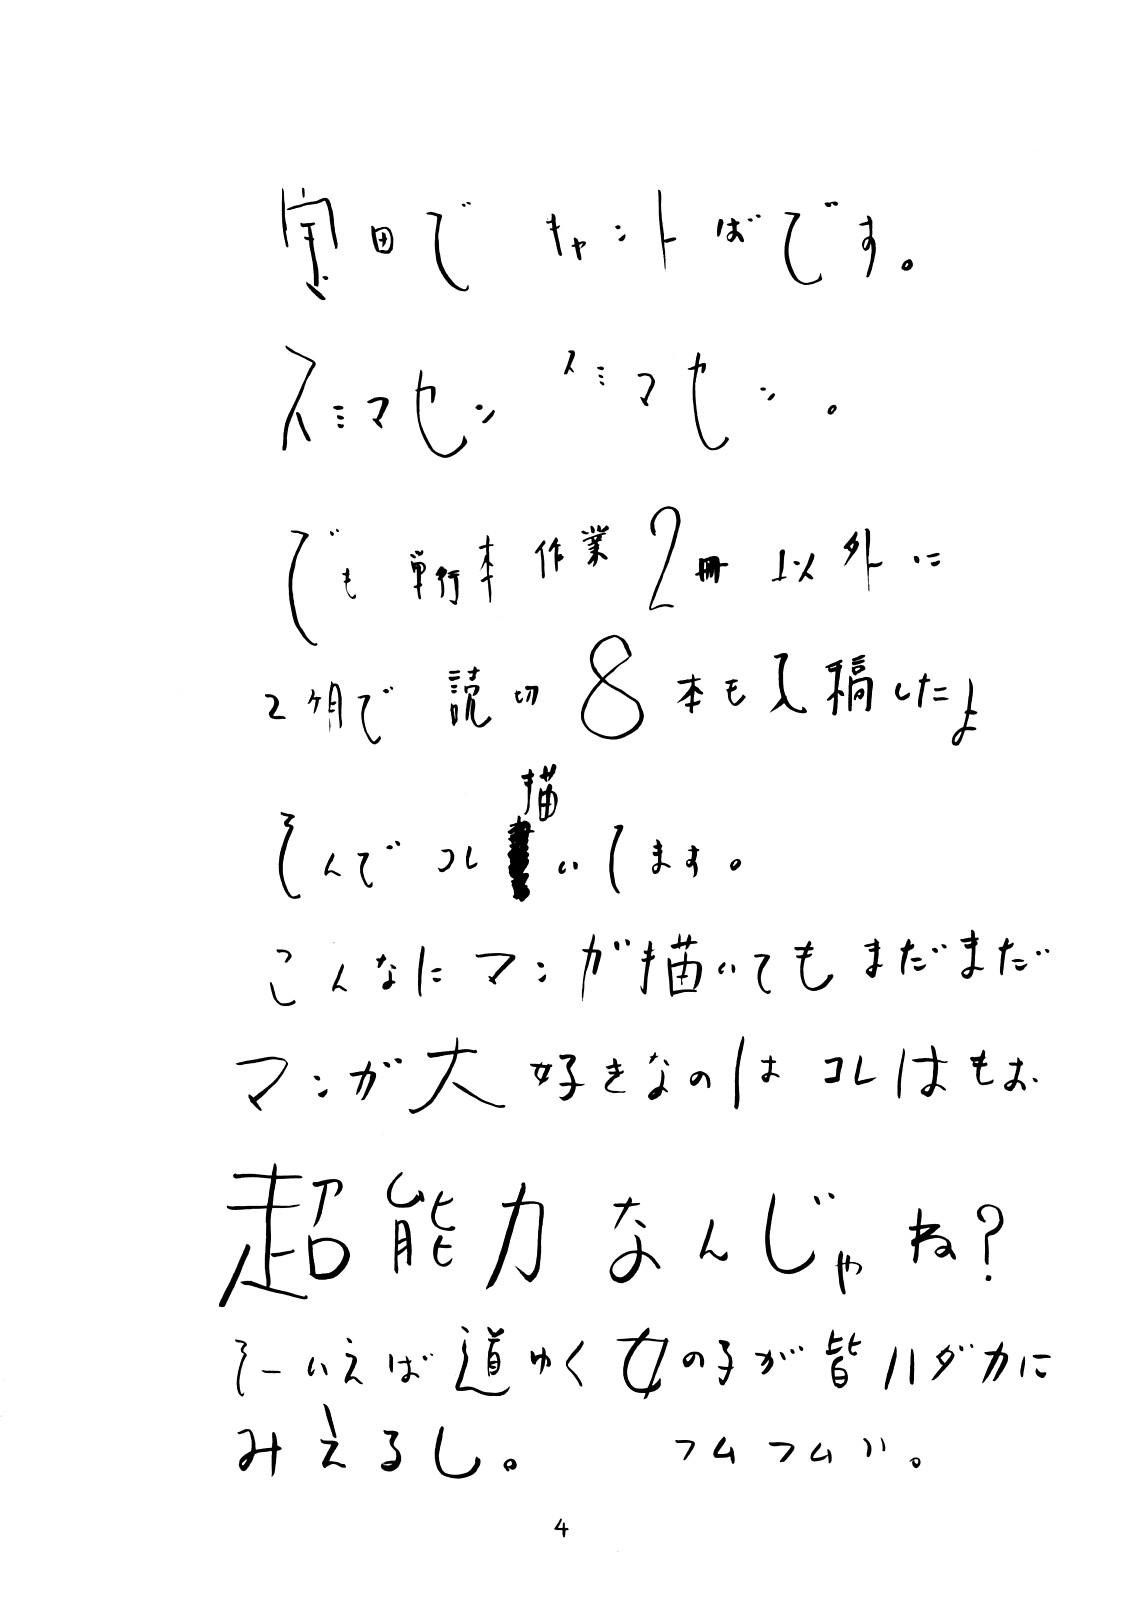 室田で キャントばです。
スミマセン スミマセン。
でも 単行本 作業 2冊 以外に
2ヶ月で 読切 8本も入稿したよ
そんで コレ描いてます。
こんなに マンガ描いても まだまだ
マンガ大好きなのは コレはもお
超能力 なんじゃね?
そーいえば 道ゆく 女の子が 皆ハダカに
みえるし。 フムフム〃。
4